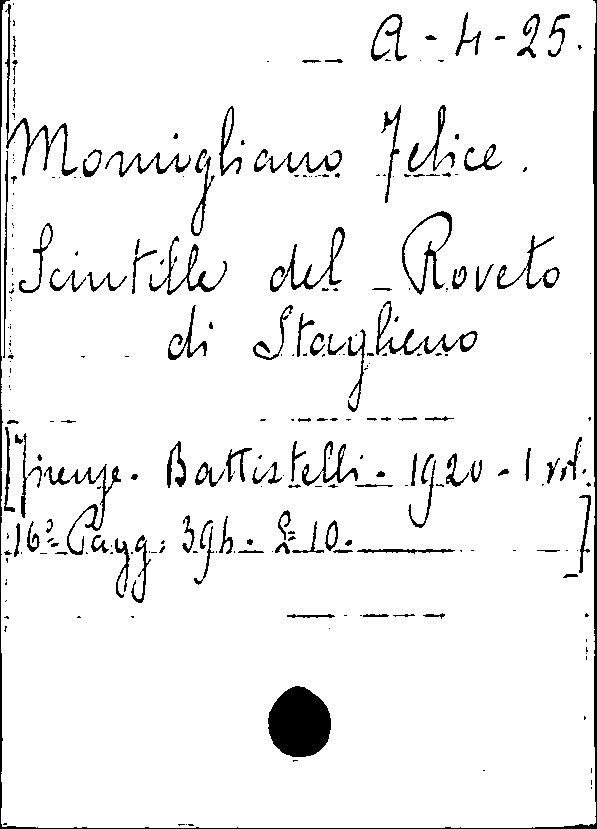 A-4-25.
Momigliano Felice.
Scintille del Roveto
di Staglieno
[Firenze. Battistelli. 1920 - 1 vol.
16º- Pagg: 394. L= 10. ]